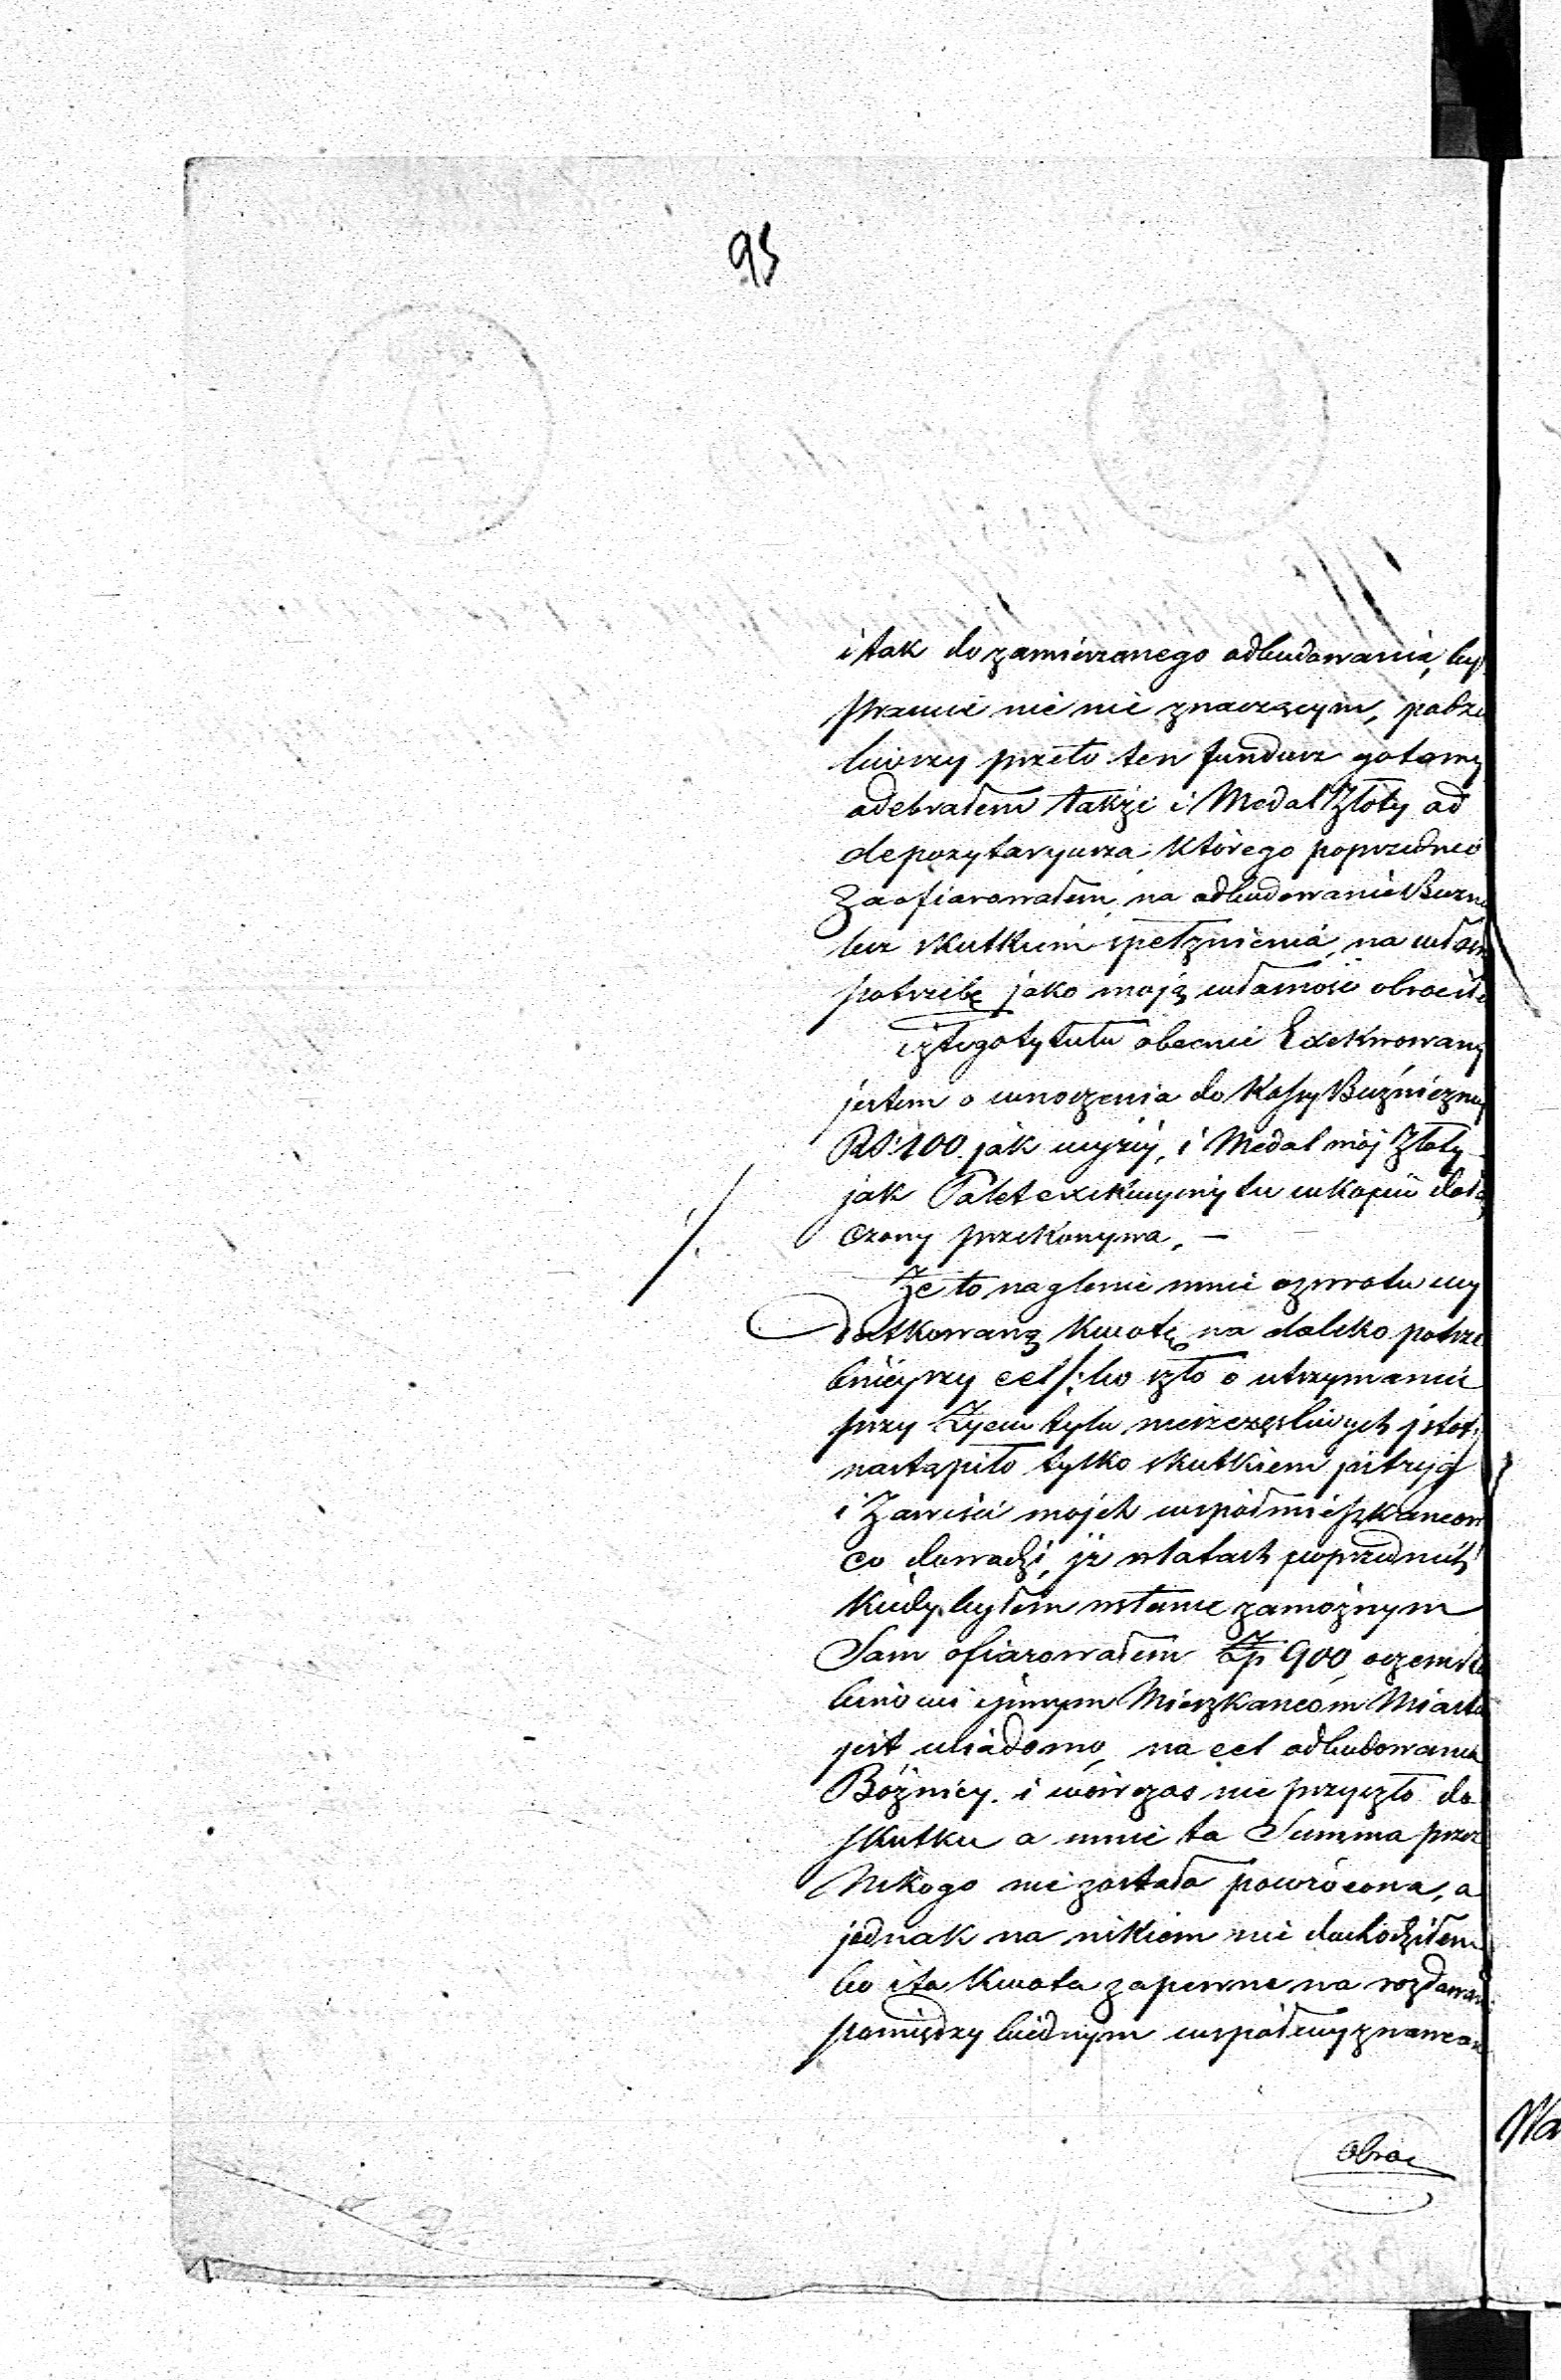 95
i tak do zamierzanego odbudowania, by
prawie nic nie znaczącym, podzie
liwszy przeto ten fundusz gotowy
odebrałem także i Medal Złoty od
depozytaryusza, którego poprzednio
Zaofiarowałem, na odbudowanie Buzni
bez skutkum spełznienia, na własn
potrzebę jako moją własność obrociłe
iż tego tytułu obecnie Exekwowany
jestem o wnoszenia do Kassy Buźniczney
RS: 100. jak wyżej, i Medal mój Złoty
jak Palet exekucyiny tu w kopii dołą
czony przekonywa. —
Że to naglenie mnie o zwrotu wy
datkowaną kwotę na daleko potrze
bnieyszy cel /: bo szło o utrzymanie
przy Życiu tylu nieszczęśliwych istot
nastąpiło tylko skutkiem
i Zawiści mojch współmieszkancow
co dowodzi, iż w latach poprzednich
kiedy byłem w stanie zamożnym
Sam ofiarowałem Złp 900, o czem
jnnym Mieszkancóm Miasta
jest wiadomo, na cel odbudowania
Bóżnicy. i wówczas nie przyszło do
skutku a mnie ta Summa przez
Nikogo nie została powrócona, a
jednak na nikiem nie dochodziłem
bo i ta kwota zapewne na rozdawani
pomiędzy biednym współwyznawcom
obroc
Wa